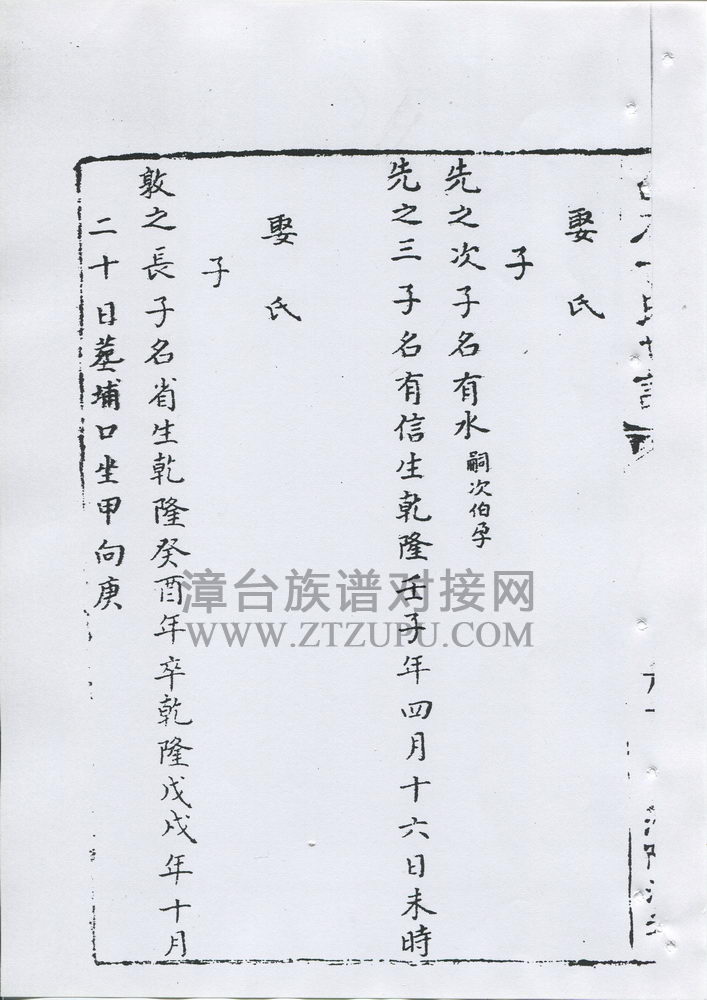 娶氏
子
先之次子名有水嗣次伯孕
先之三子名有信生乾隆壬子年四月十六日未時
娶氏
子
敦之長子名省生乾隆癸酉年卒乾隆戊戌年十月
二十日墓埔口坐甲向庚
漳台族谱对接网
WWW.ZTZUPU.COM